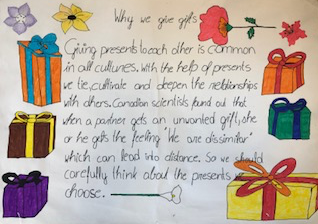 Why we give gifts
Giving presents to each other is common
in all cultures. With the help of presents
we tie, cultivate and deepen the relationships
with others. Canadian scientists found out that
when a partner gets an unwanted gift, she
or he gets the feeling "We are dissimilar"
which can lead into distance. So we should
carefully think about the presents we
choose.